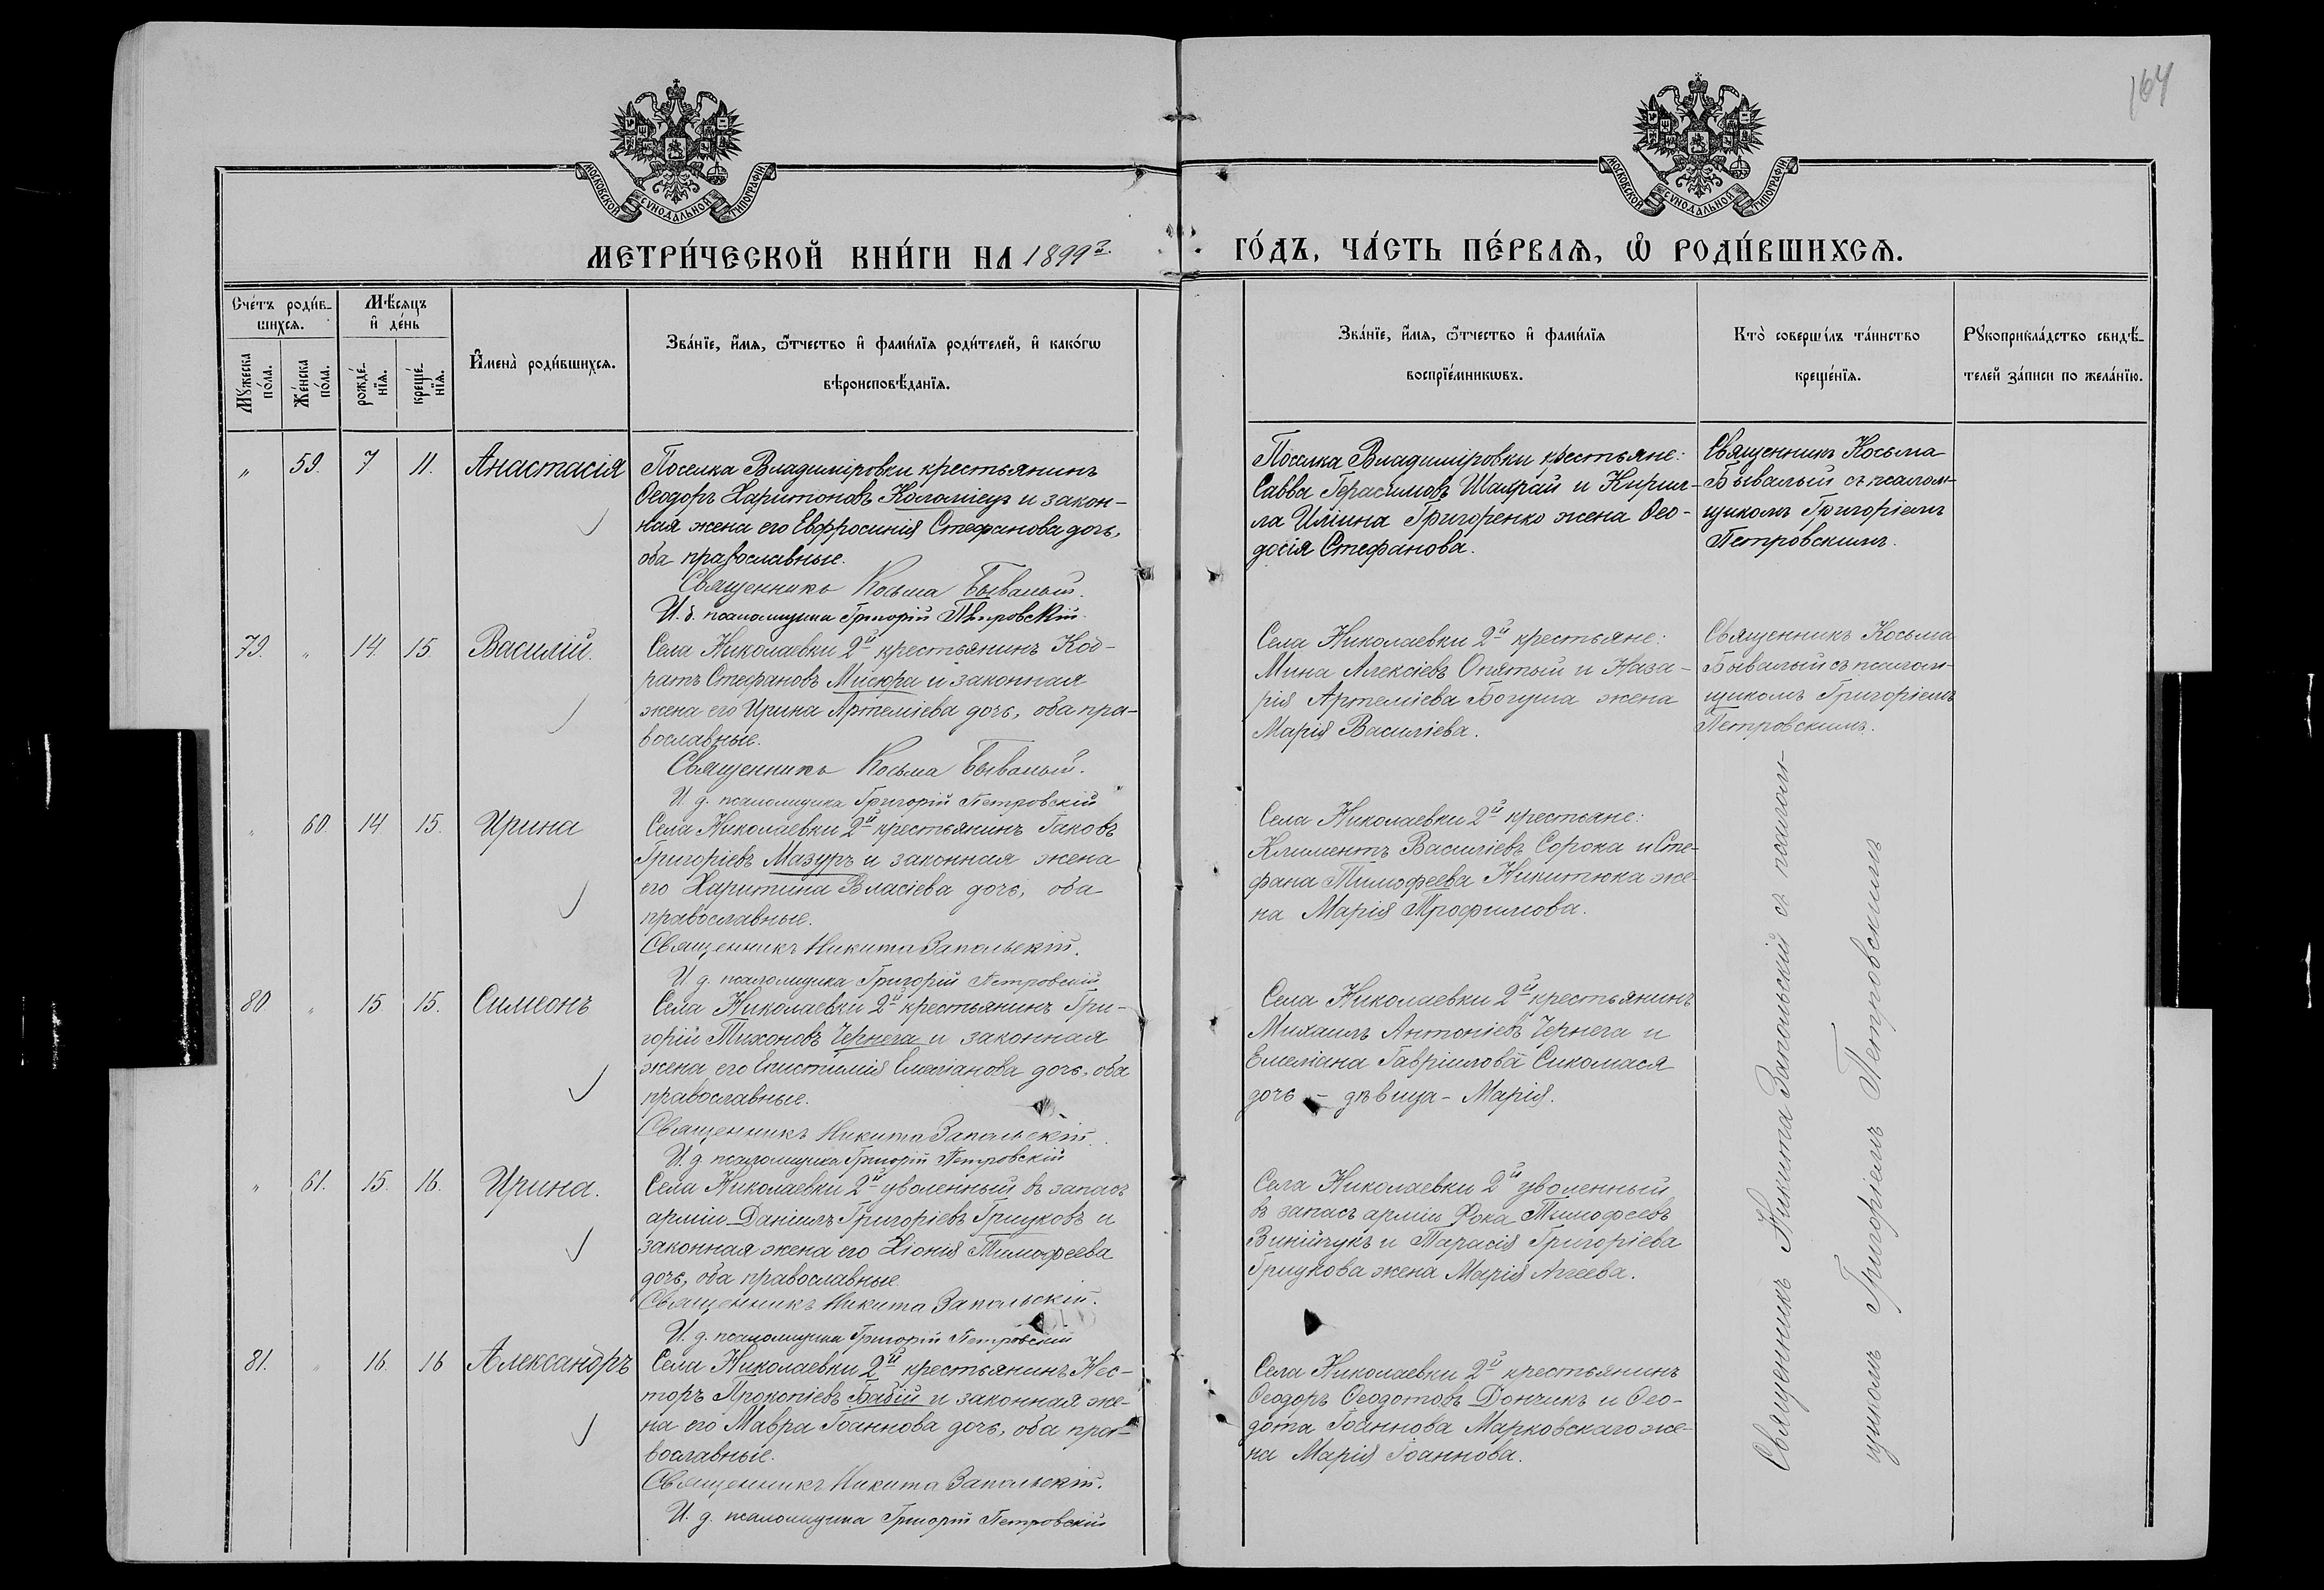 164
МОСКОВСКОЙ СѴНОДАЛЬНОЙ ТИПОГРАФІИ.
МОСКОВСКОЙ СѴНОДАЛЬНОЙ ТИПОГРАФІИ.
МЕТРИ́ЧЕСКОЙ КНИ́ГИ НА 1899 г.
ГО́ДЪ, ЧА́СТЬ ПЕ́РВАѦ, Ѿ РОДИ́ВШИХСѦ.
Сче́тъ роди́в-
шихсѧ.
Мѹ́жеска по́ла.
Же́нска по́ла.
Мѣ́сѧцъ
и҆ де́нь
рожде́-
нїѧ.
креще́-
нїѧ.
И҆мена̀ роди́вшихсѧ.
Зва́нїе, и҆́мѧ, ѻ҆́тчество и҆ фами́лїѧ роди́телей, и҆ како́гѡ
вѣроисповѣ́данїѧ.
Зва́нїе, и҆́мѧ, ѻ҆́тчество и҆ фами́лїѧ
воспрїе́мникѡвъ.
Кто̀ соверши́лъ та́инство
креще́нїѧ.
Рѹкоприкла́дство свидѣ́-
телей за́писи по жела́нїю.
" 59. 7 11. Анастасія
Поселка Владиміровки крестьянинъ
Ѳеодоръ Харитоновъ Коломіецъ и закон-
ная жена его Евфросинія Стефанова дочь,
оба православные.
Священникъ Косьма Бывалый.
И. д. псаломщика Григорій Петровскій.
Поселка Владиміровки крестьяне:
Савва Герасимовъ Шамрай и Кирил-
ла Иліина Григоренко жена Ѳео-
досія Стефанова.
Священникъ Косьма
Бывалый съ псалом-
щикомъ Григоріемъ
Петровскимъ.
79. " 14. 15. Василій.
Села Николаевки 2й крестьянинъ Код-
ратъ Стефановъ Мисюра и законная
жена его Ирина Артеміева дочь, оба пра-
вославные.
Священникъ Косьма Бывалый.
И. д. псаломщика Григорій Петровскій
Села Николаевки 2й крестьяне:
Мина Алексіевъ Опятый и Наза-
рія Артеміева Богуша жена
Марія Василіева.
Священникъ Косьма
Бывалый съ псалом-
щикомъ Григоріемъ
Петровскимъ.
" 60. 14 15. Ирина
Села Николаевки 2й крестьянинъ Іаковъ
Григоріевъ Мазуръ и законная жена
его Харитина Власіева дочь, оба
православные.
Священникъ Никита Запольскій.
И. д. псаломщика Григорій Петровскій
Села Николаевки 2й крестьяне:
Климентъ Василіевъ Сорока и Сте-
фана Тимофеева Никитюка же-
на Марія Трофимова.
80. " 15. 15. Симеонъ
Села Николаевки 2й крестьянинъ Гри-
горій Тихоновъ Чернега и законная
жена его Епистимія Емеліанова дочь, оба
православные.
Священникъ Никита Запольскій.
И. д. псаломщика Григорій Петровскій
Села Николаевки 2й крестьянинъ
Михаилъ Антоніевъ Чернега и
Емеліана Гавріилова Сикомася
дочь - дѣвица - Марія.
" 61. 15. 16. Ирина.
Села Николаевки 2й уволенный въ запасъ
арміи Даніилъ Григоріевъ Грицковъ и
законная жена его Хіонія Тимофеева
дочь, оба православные.
Священникъ Никита Запольскій.
И. д. псаломщика Григорій Петровскій
Села Николаевки 2й уволенный
въ запасъ арміи Фока Тимофеевъ
Винійчукъ и Тарасія Григоріева
Грицкова жена Марія Агеева.
81. " 16. 16 Александръ
Села Николаевки 2й крестьянинъ Нес-
торъ Прокопіевъ Бабій и законная же-
на его Мавра Іоаннова дочь, оба пра-
вославные.
Священникъ Никита Запольскій.
И. д. псаломщика Григорій Петровскій
Села Николаевки 2й крестьянинъ
Ѳеодоръ Ѳеодотовъ Дончикъ и Ѳео-
дота Іоаннова Марковскаго же-
на Марія Іоаннова.
Священникъ Никита Запольскій съ псалом-
щикомъ Григоріемъ Петровскимъ